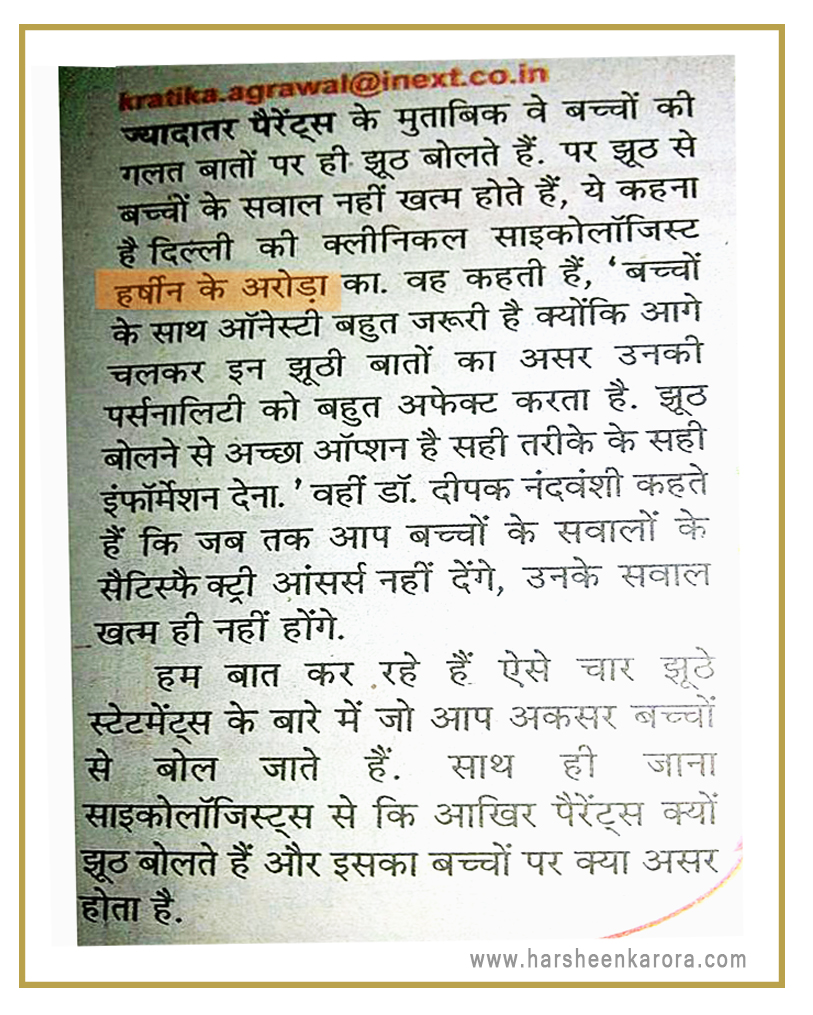 kratika.agrawal@inext.co.in
ज्यादातर पैरेंट्स के मुताबिक वे बच्चों की
गलत बातों पर ही झूठ बोलते हैं. पर झूठ से
बच्चों के सवाल नहीं खत्म होते हैं, ये कहना
है दिल्ली की क्लीनिकल साइकोलॉजिस्ट
हर्षीन के अरोड़ा का. वह कहती हैं, ‘बच्चों
के साथ ऑनेस्टी बहुत जरूरी है क्योंकि आगे
चलकर इन झूठी बातों का असर उनकी
पर्सनालिटी को बहुत अफेक्ट करता है. झूठ
बोलने से अच्छा ऑप्शन है सही तरीके के सही
इंफॉर्मेशन देना.’ वहीं डॉ. दीपक नंदवंशी कहते
हैं कि जब तक आप बच्चों के सवालों के
सैटिस्फैक्ट्री आंसर्स नहीं देंगे, उनके सवाल
खत्म ही नहीं होंगे.
हम बात कर रहे हैं ऐसे चार झूठे
स्टेटमेंट्स के बारे में जो आप अकसर बच्चों
से बोल जाते हैं. साथ ही जाना
साइकोलॉजिस्ट्स से कि आखिर पैरेंट्स क्यों
झूठ बोलते हैं और इसका बच्चों पर क्या असर
होता है.
www.harsheenkarora.com